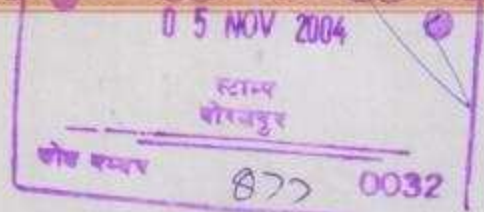 05 NOV 2004
स्टाम्प
गोरखपुर
कोष नम्बर
877 0032